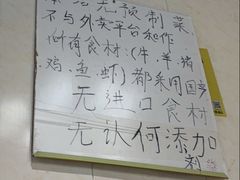 本店无预制菜
不与外卖平台合作
所有食材:(牛、羊、猪
鸡、鱼、虾)都采用国产
无进口食材
无认何添加
剂